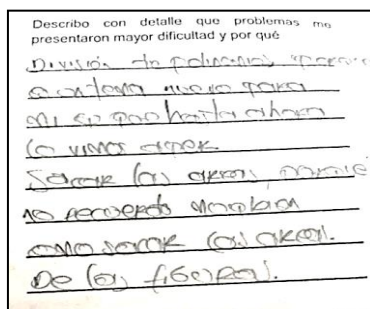 Describo con detalle que problemas me
presentaron mayor dificultad y por qué
División de polinomios porque
tema nuevo para
mi hasta ahora
lo vimos
Sacar las areas, porque
no recuerdo
como sacar las areas.
De las figuras.